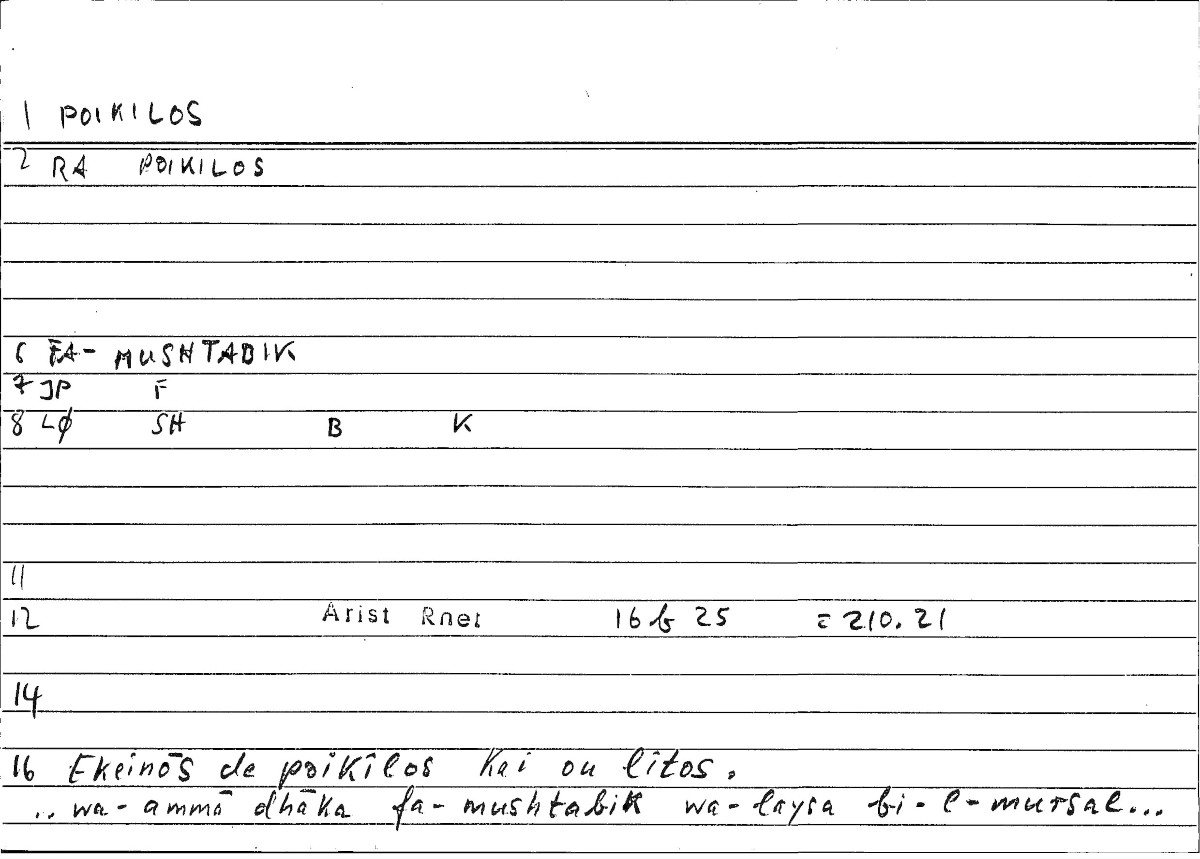 1 POIKILOS
2 RA POIKILOS
6 FA- MUSHTABIK
7 JP F
8 LØ SH B K
11
12 Arist Rhet 16 b 25 = 210. 21
14
16 Ekeinōs de poikîlos kai ou lîtos.
.. wa-ammā dhāka fa-mushtabik wa-laysa bi-l-mursal...